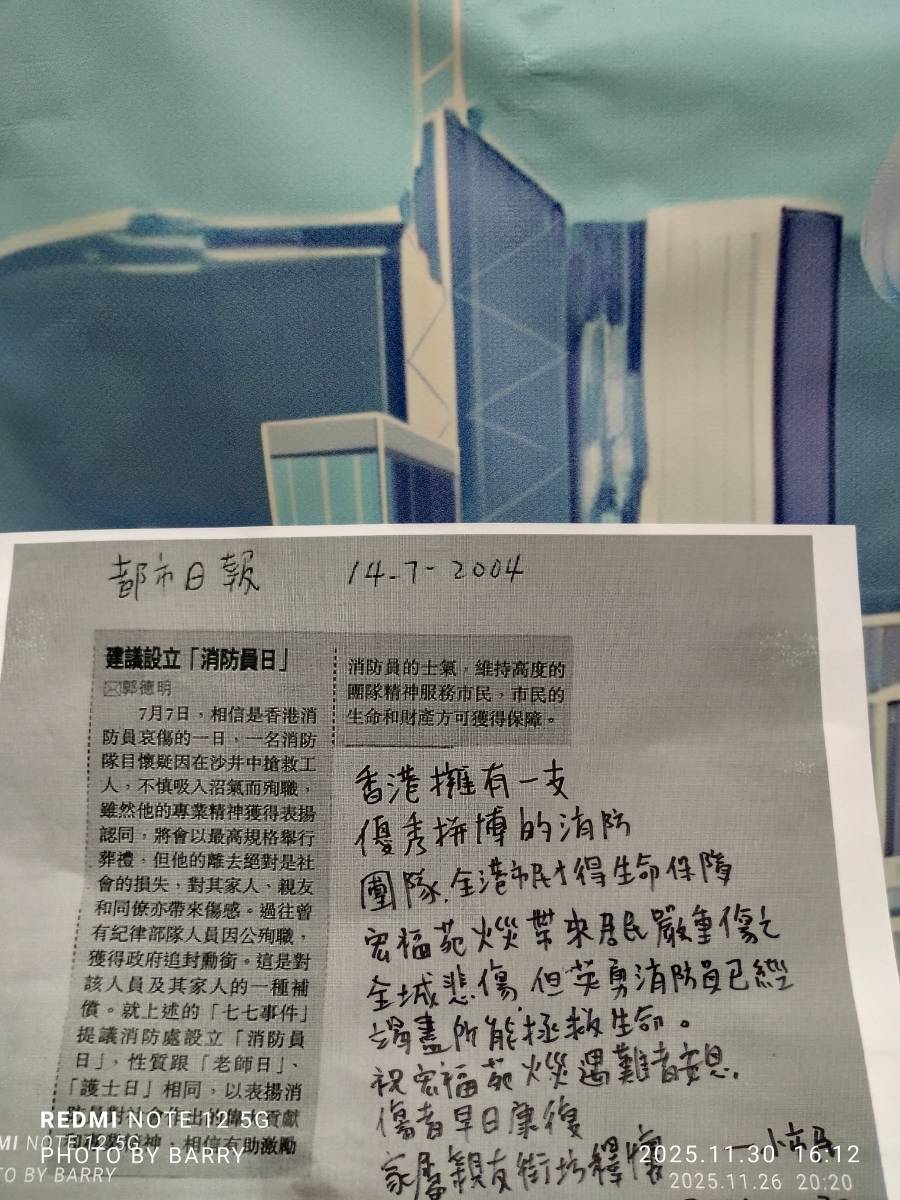 都市日報 14-7-2004
建議設立「消防員日」
郭德明
7月7日，相信是香港消
防員哀傷的一日，一名消防
隊目懷疑因在沙井中搶救工
人，不慎吸入沼氣而殉職，
雖然他的專業精神獲得表揚
認同，將會以最高規格舉行
葬禮，但他的離去絕對是社
會的損失，對其家人、親友
和同僚亦帶來傷感。過往曾
有紀律部隊人員因公殉職，
獲得政府追封勳銜。這是對
該人員及其家人的一種補
償。就上述的「七七事件」
提議消防處設立「消防員
日」，性質跟「老師日」、
「護士日」相同，以表揚消
貢獻
神，相信有助激勵
消防員的士氣，維持高度的
團隊精神服務市民，市民的
生命和財產方可獲得保障。
香港擁有一支
優秀拼博的消防
團隊，全港市民才得生命保障
宏福苑火災帶來居民嚴重傷亡
全城悲傷，但英勇消防員已經
竭盡所能拯救生命。
祝宏福苑火災遇難者安息，
傷者早日康復
家屬親友街坊釋懷
REDMI NOTE 12 5G
PHOTO BY BARRY
2025.11.30 16:12
MI NOTE 12 5G
TO BY BARRY
2025.11.26 20:20